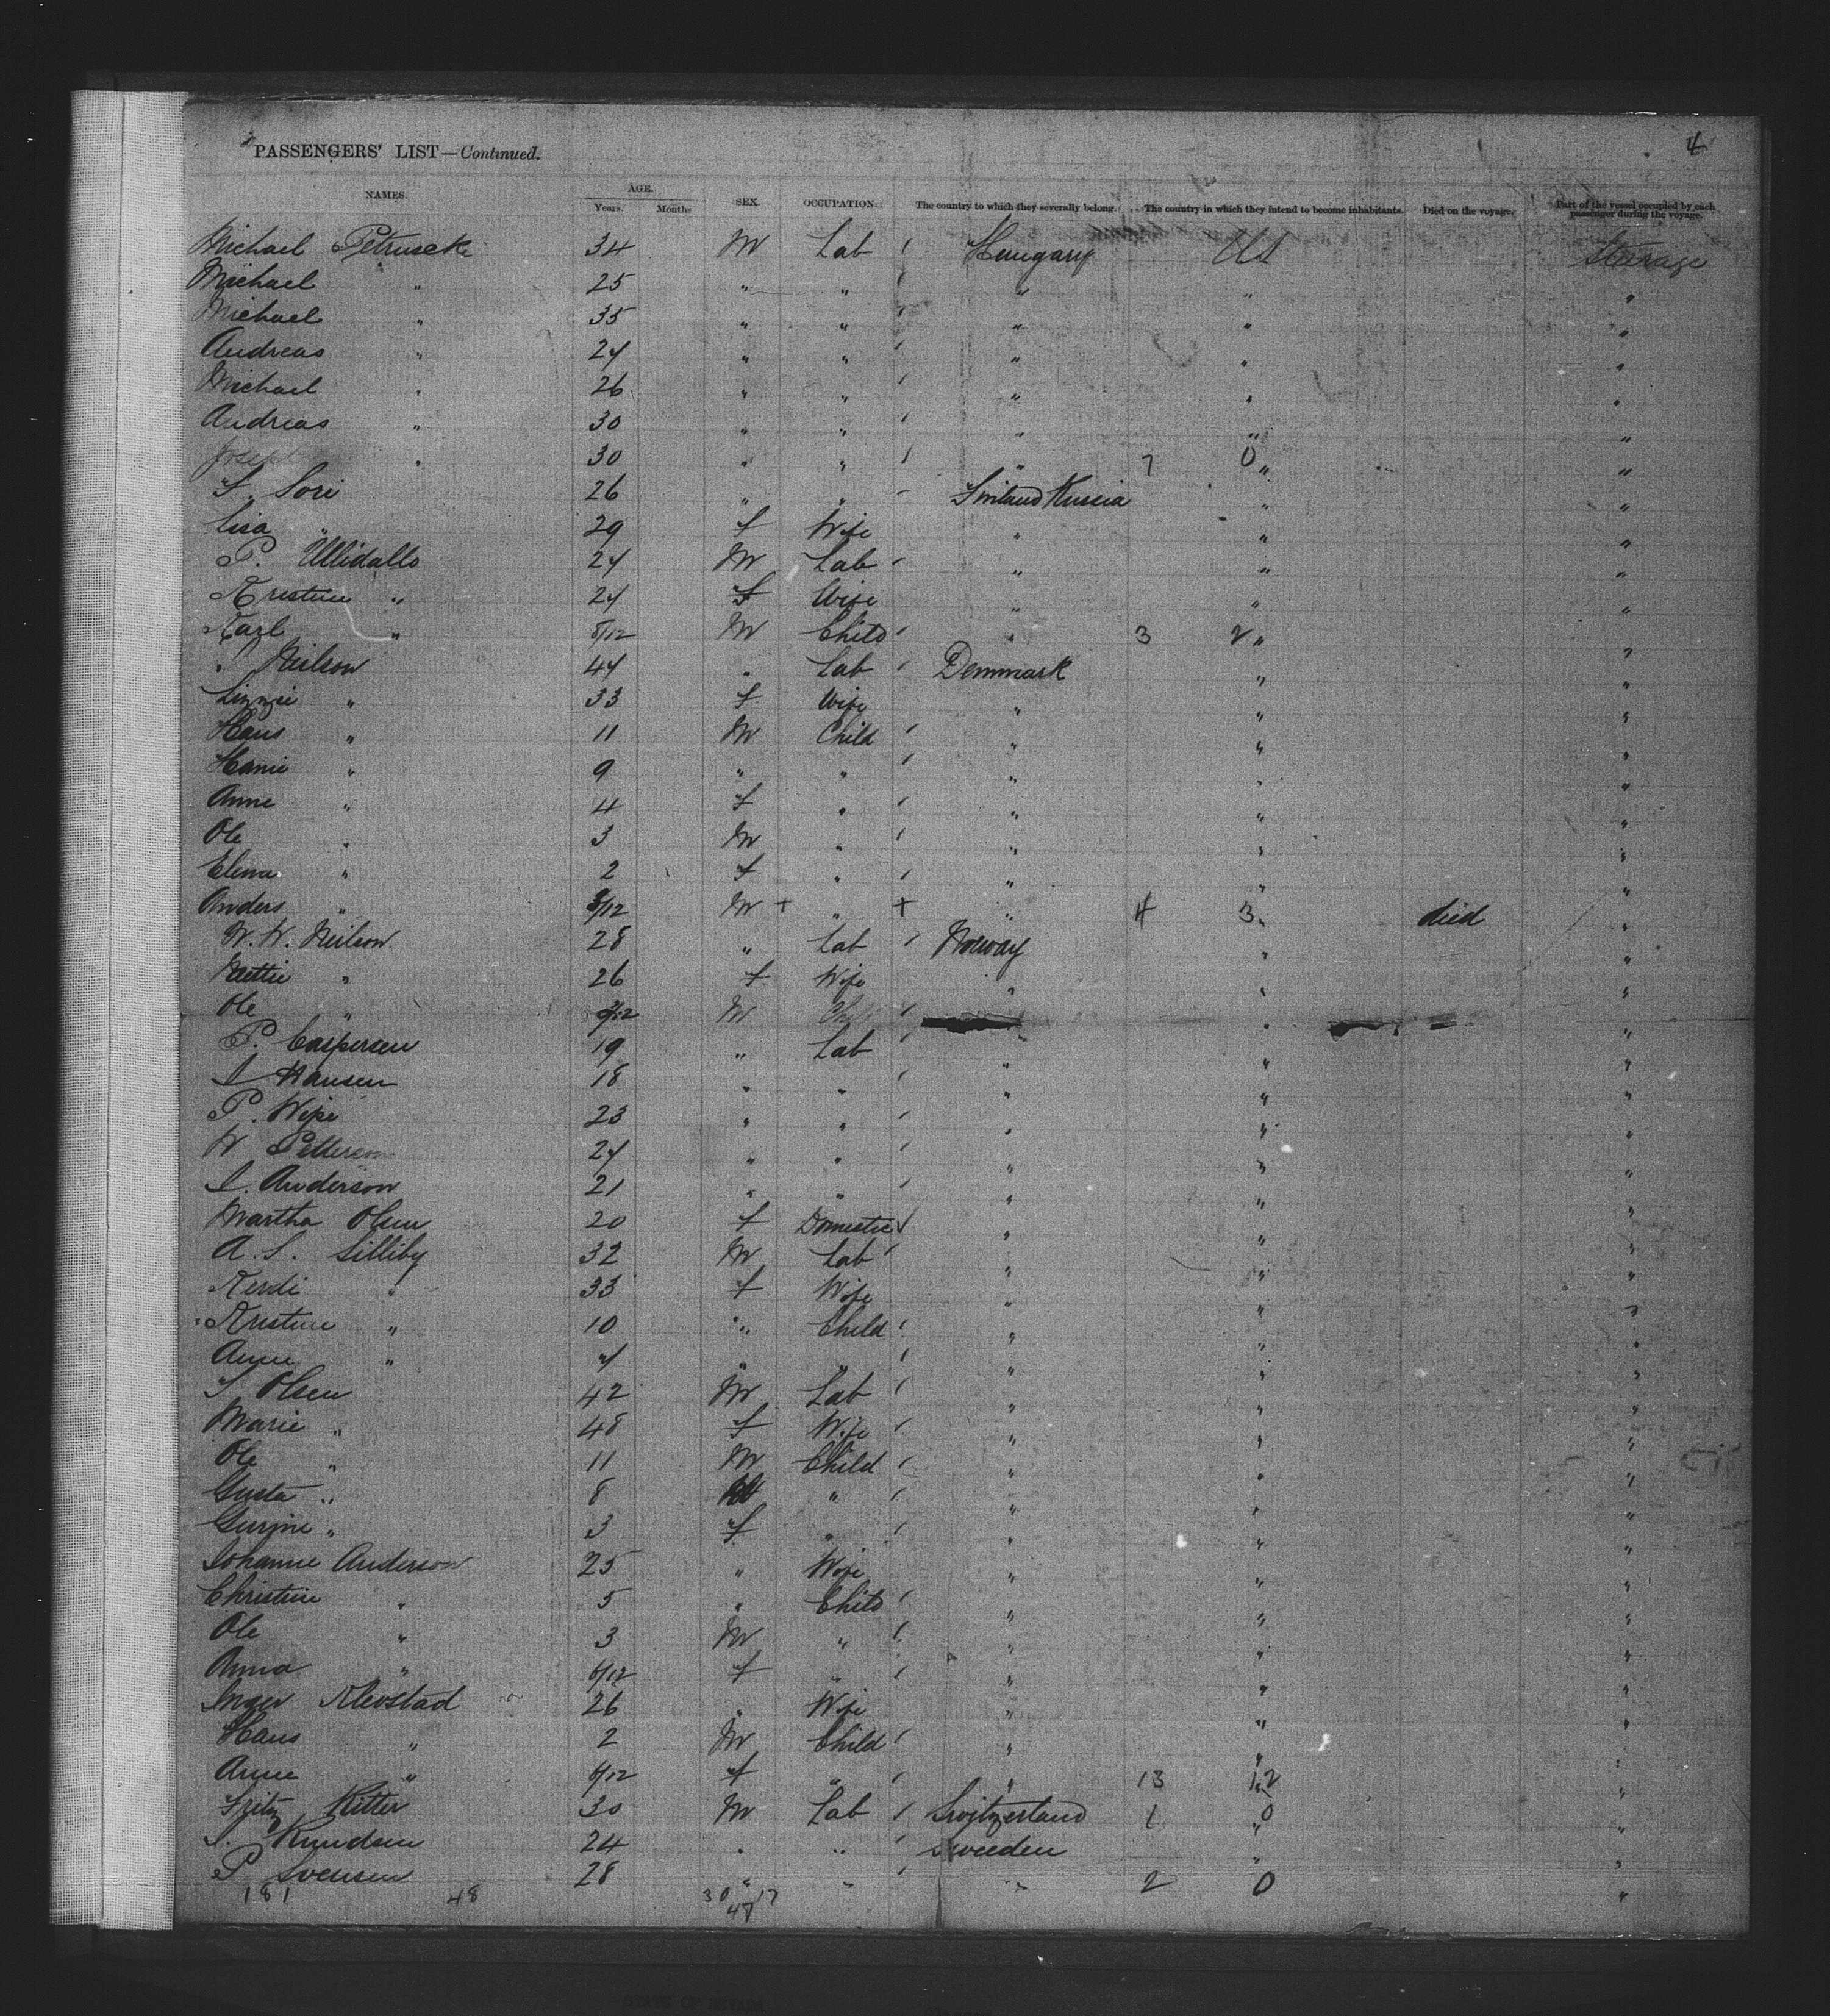 4
PASSENGERS' LIST—Continued.
NAMES. AGE. Years. Months SEX. OCCUPATION. The country to which they severally belong. The country in which they intend to become inhabitants. Died on the voyage. Part of the vessel occupied by each passenger during the voyage.
Michael Petrusek 34 M Lab Hungary US Steerage
Michael " 25 " " " " "
Michael " 35 " " " " "
Andreas " 24 " " " " "
Michael " 26 " " " " "
Andreas " 30 " " " " "
Joseph " 30 " " " 7 0 " "
S. Sori 26 " " Finland Russia " "
Lisa " 29 f Wife " " "
P. Ullidallo 24 M Lab " " "
Kristine " 24 f Wife " " "
Karl " 8/12 M Child " 3 2 " "
Neilson 44 " Lab Denmark " "
Linnie " 33 f Wife " " "
Hans " 11 M Child " " "
Hanie " 9 " " " " "
Anne " 4 f " " " "
Ole " 3 M " " " "
Elena " 2 f " " " "
Anders " /12 M + " + " 4 3 " died "
N. N. Neilson 28 " Lab Norway " "
Mettie " 26 f Wife " " "
Ole " /12 M Child " "
P. Caspersen 19 " Lab " " "
I Hansen 18 " " " " "
P. Wipe 23 " " " " "
W Petterson 24 " " " " "
I. Anderson 21 " " " " "
Martha Olsen 20 f Domestic " " "
A. S. Silliby 32 M Lab " " "
Kerdi " 33 f Wife " " "
Kristine " 10 " Child " " "
Anne " 4 " " " " "
S Olsen 42 M Lab " " "
Marie " 48 f Wife " " "
Ole " 11 M Child " " "
Gusta " 8 M " " " "
Gurine " 3 f " " " "
Johanne Anderson 25 " Wife " " "
Christine " 5 " Child " " "
Ole " 3 M " " " "
Anna " 6/12 f " " " "
Inger Klevstad 26 " Wife " " "
Hans " 2 M Child " " "
Anne " 6/12 f " " 13 12 "
Fritz Ritter 30 M Lab Switzerland 1 0 " "
S. Knudsen 24 " " Sweeden " "
P Svensen 28 " " " 2 0 "
181 48 30 17
47